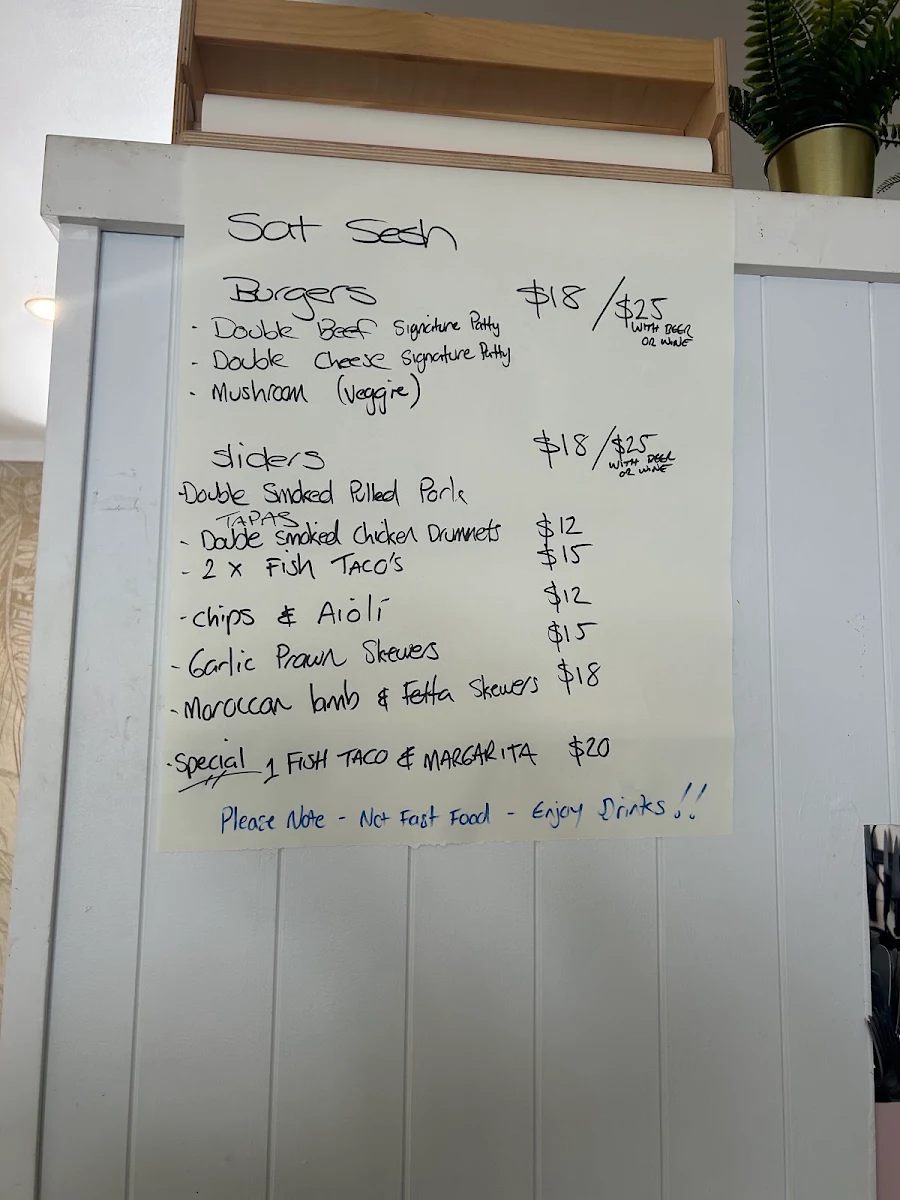 Sat Sesh
Burgers $18 / $25
WITH BEER
OR WINE
- Double Beef Signature Patty
- Double Cheese Signature Patty
- Mushroom (Veggie)
Sliders $18 / $25
WITH BEER
OR WINE
- Double Smoked Pulled Pork
TAPAS
- Double Smoked Chicken Drumnets $12
- 2 x Fish TACO'S $15
- Chips & Aioli $12
- Garlic Prawn Skewers $15
- Moroccan lamb & Fetta Skewers $18
- Special 1 FISH TACO & MARGARITA $20
Please Note - Not Fast Food - Enjoy Drinks!!